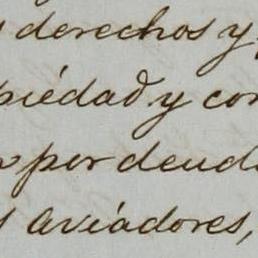 derechos y
piédad y con
por deud
aviadores,